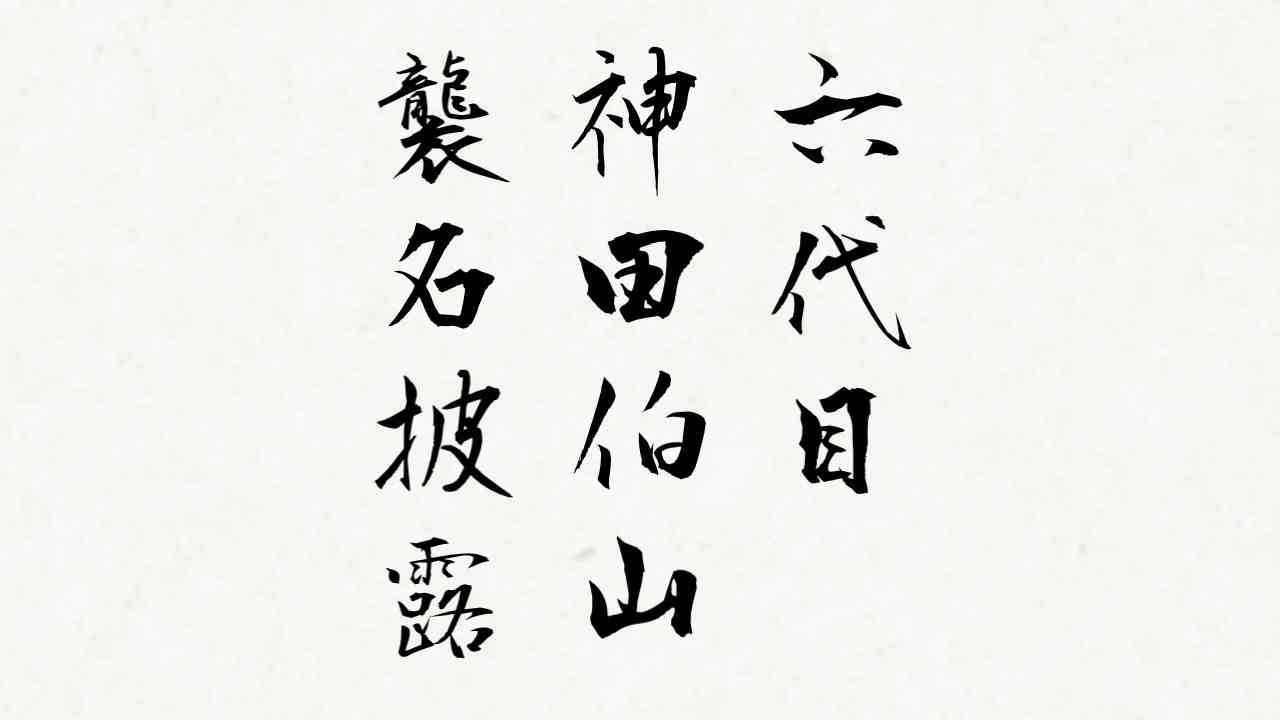 六代目
神田伯山
襲名披露